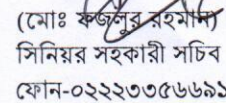 (মোঃ ফজলুর রহমান)
সিনিয়র সহকারী সচিব
ফোন-০২২২৩৩৫৬৬৯১